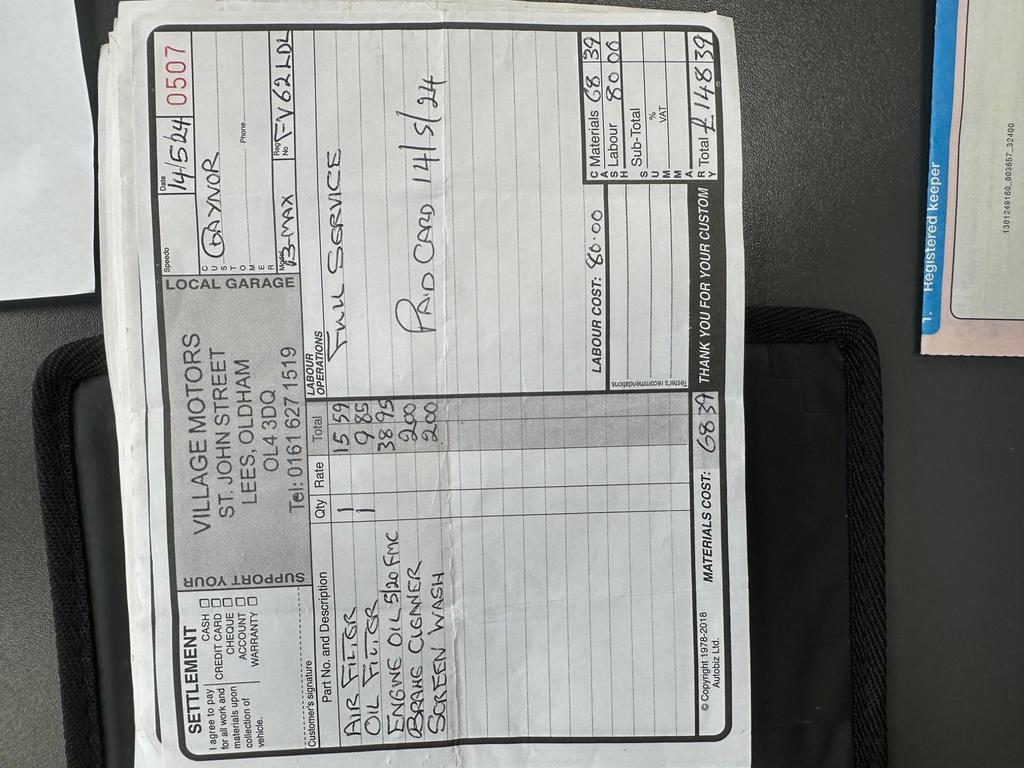 SETTLEMENT
I agree to pay for all work and materials upon collection of vehicle.
CASH
CREDIT CARD
CHEQUE
ACCOUNT
WARRANTY
Customer's signature
SUPPORT YOUR
LOCAL GARAGE
VILLAGE MOTORS
ST. JOHN STREET
LEES, OLDHAM
OL4 3DQ
Tel: 0161 627 1519
Speedo
Date 14/5/24 0507
CUSTOMER GAYNOR
Phone
Model B-MAX
Reg No FV62LDL
Part No. and Description Qty Rate Total
AIR FILTER 1 15 59
OIL FILTER 1 9 85
ENGINE OIL 5/20 FMC 38 95
BRAKE CLEANER 2 00
SCREEN WASH 2 00
LABOUR OPERATIONS
FULL SERVICE
PAID CARD 14/5/24
LABOUR COST: 80.00
Tester's recommendations
CASH SUMMARY
Materials 68 39
Labour 80 00
Sub-Total
% VAT
Total £148 39
© Copyright 1978-2018
Autobiz Ltd.
MATERIALS COST: 68 39
THANK YOU FOR YOUR CUSTOM
1. Registered keeper
1301249160_003657_32400